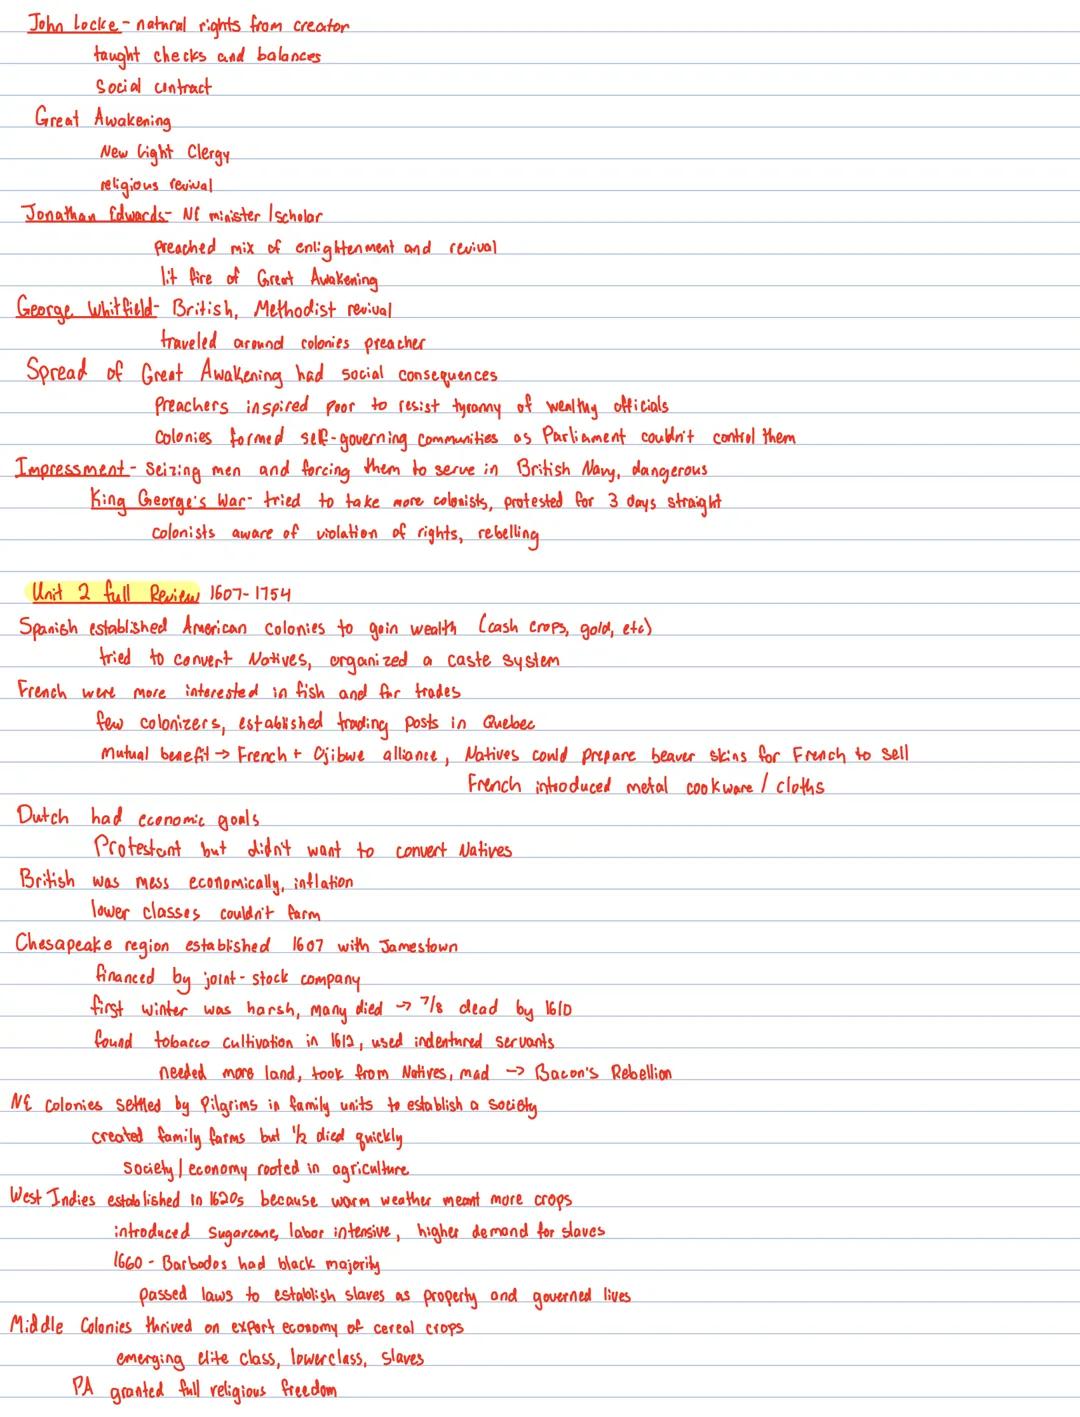 John Locke - natural rights from creator
taught checks and balances
Social contract
Great Awakening
New Light Clergy
religious revival
Jonathan Edwards - NE minister / scholar
preached mix of enlightenment and revival
lit fire of Great Awakening
George Whitfield - British, Methodist revival
traveled around colonies preacher
Spread of Great Awakening had social consequences
Preachers inspired poor to resist tyranny of wealthy officials
Colonies formed self-governing communities as Parliament couldn't control them
Impressment - Seizing men and forcing them to serve in British Navy, dangerous
King George's War - tried to take more colonists, protested for 3 days straight
colonists aware of violation of rights, rebelling
Unit 2 full Review 1607-1754
Spanish established American colonies to gain wealth (cash crops, gold, etc)
tried to convert Natives, organized a caste system
French were more interested in fish and fur trades
few colonizers, established trading posts in Quebec
Mutual benefit → French + Ojibwe alliance, Natives could prepare beaver skins for French to sell
French introduced metal cookware / cloths
Dutch had economic goals
Protestant but didn't want to convert Natives
British was mess economically, inflation
lower classes couldn't farm
Chesapeake region established 1607 with Jamestown
financed by joint-stock company
first winter was harsh, many died → 7/8 dead by 1610
found tobacco cultivation in 1612, used indentured servants
needed more land, took from Natives, mad → Bacon's Rebellion
NE colonies settled by Pilgrims in family units to establish a society
created family farms but 1/2 died quickly
Society / economy rooted in agriculture
West Indies established in 1620s because warm weather meant more crops
introduced sugarcane, labor intensive, higher demand for slaves
1660 - Barbados had black majority
passed laws to establish slaves as property and governed lives
Middle Colonies thrived on export economy of cereal crops
emerging elite class, lowerclass, slaves
PA granted full religious freedom